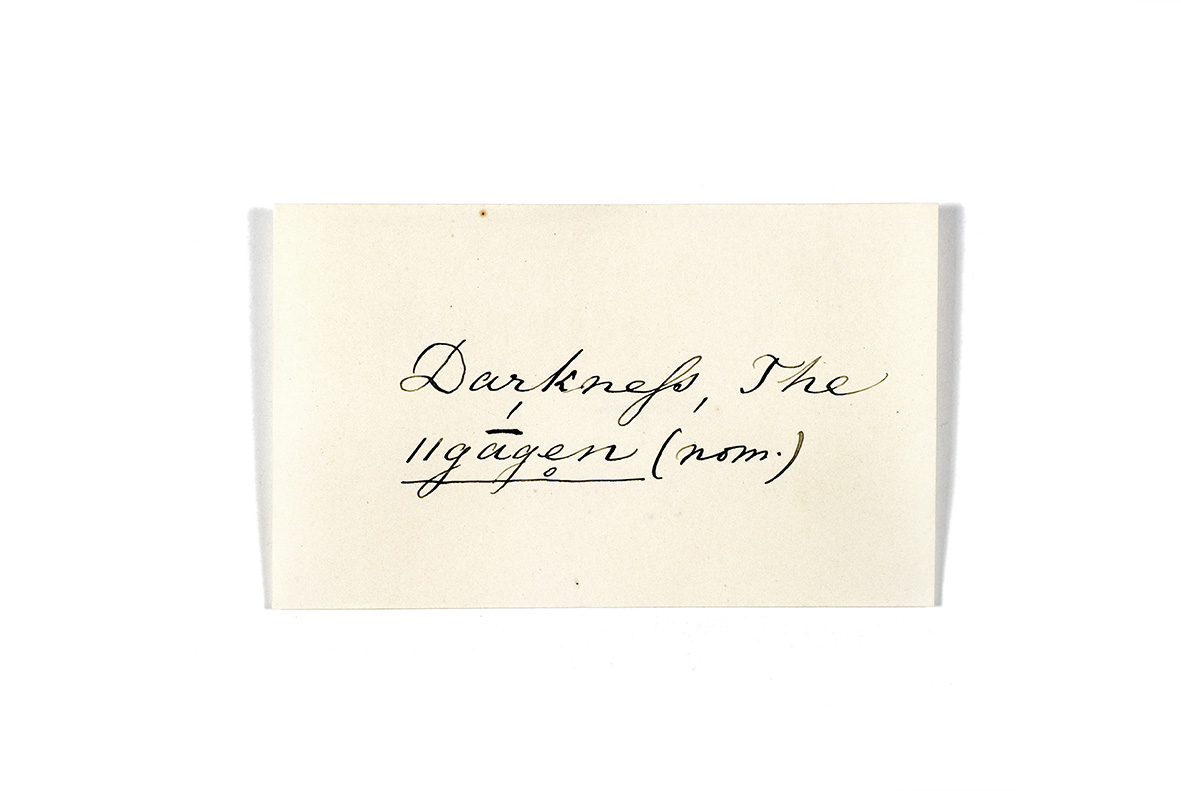 Darkneſs, The
ǁgā́ge̥n (nom.)